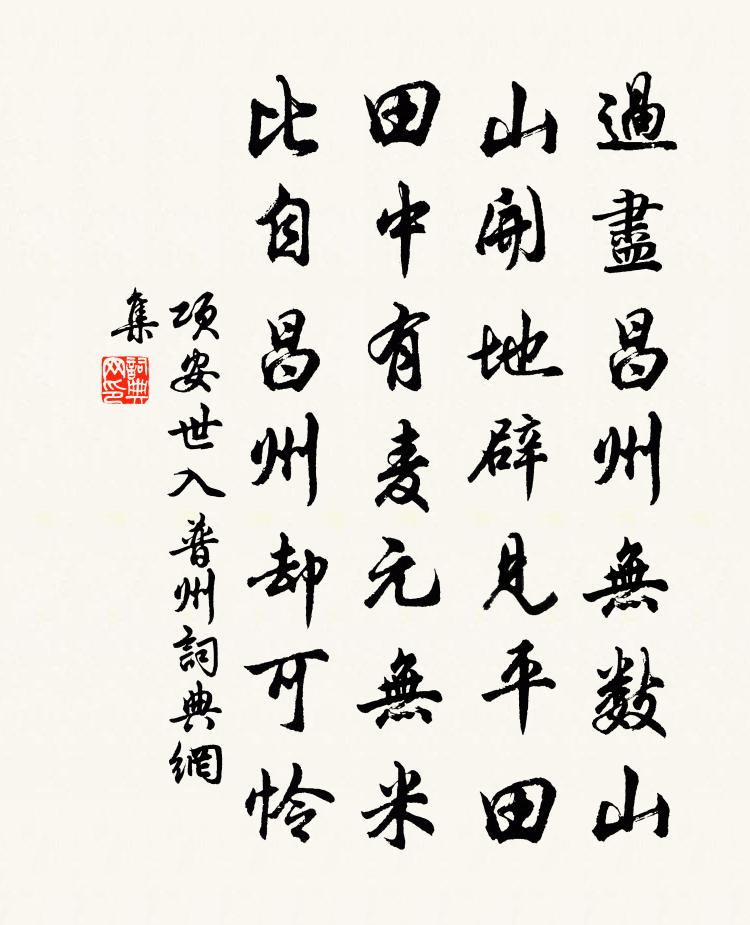 過盡昌州無數山
山開地辟見平田
田中有麦元無米
比自昌州却可怜
項安世入普州詞典網
集
詞典
网印